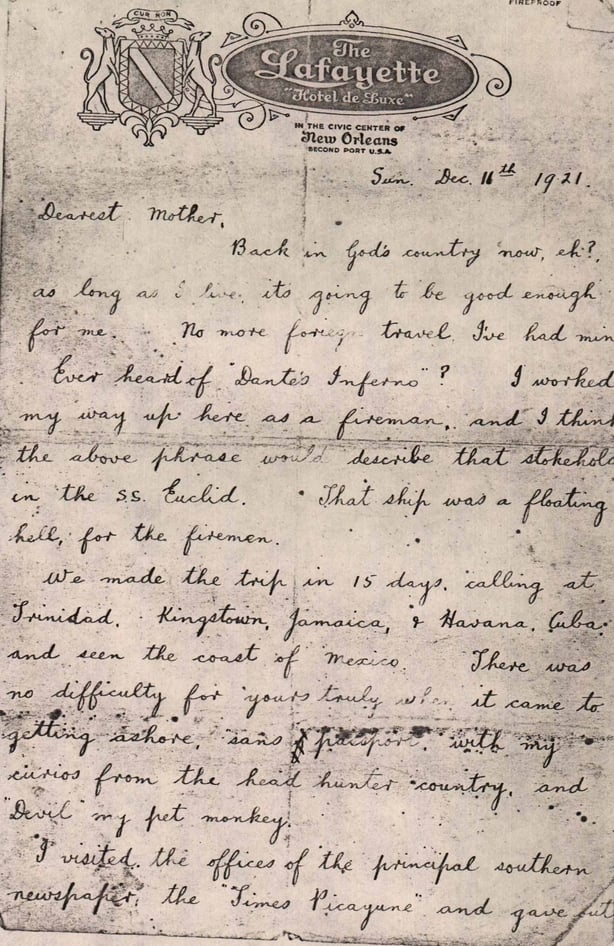 FIREPROOF
CUR NON
The
Lafayette
"Hotel de Luxe"
IN THE CIVIC CENTER OF
New Orleans
SECOND PORT U.S.A.
Sun. Dec. 11th 1921.
Dearest Mother,
Back in God's country now, eh?,
as long as I live, its going to be good enough
for me. No more foriegn travel, I've had min
Ever heard of "Dante's Inferno"? I worked
my way up here as a fireman, and I think
the above phrase would describe that stokehold
in the S.S. Euclid. That ship was a floating
hell, for the firemen.
We made the trip in 15 days, calling at
Trinidad, Kingstown, Jamaica, & Havana, Cuba.
and seen the coast of Mexico. There was
no difficulty for yours truly when it came to
getting ashore, sans passport, with my
curios from the head hunter country, and
"Devil" my pet monkey.
I visited the offices of the principal southern
newspaper, the "Times Picayune" and gave